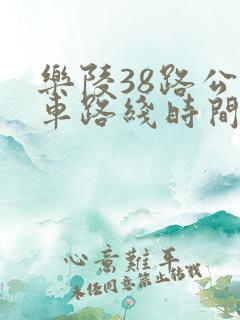 樂陵38路公
車路綫時間
心意難平
未经同意禁止转载